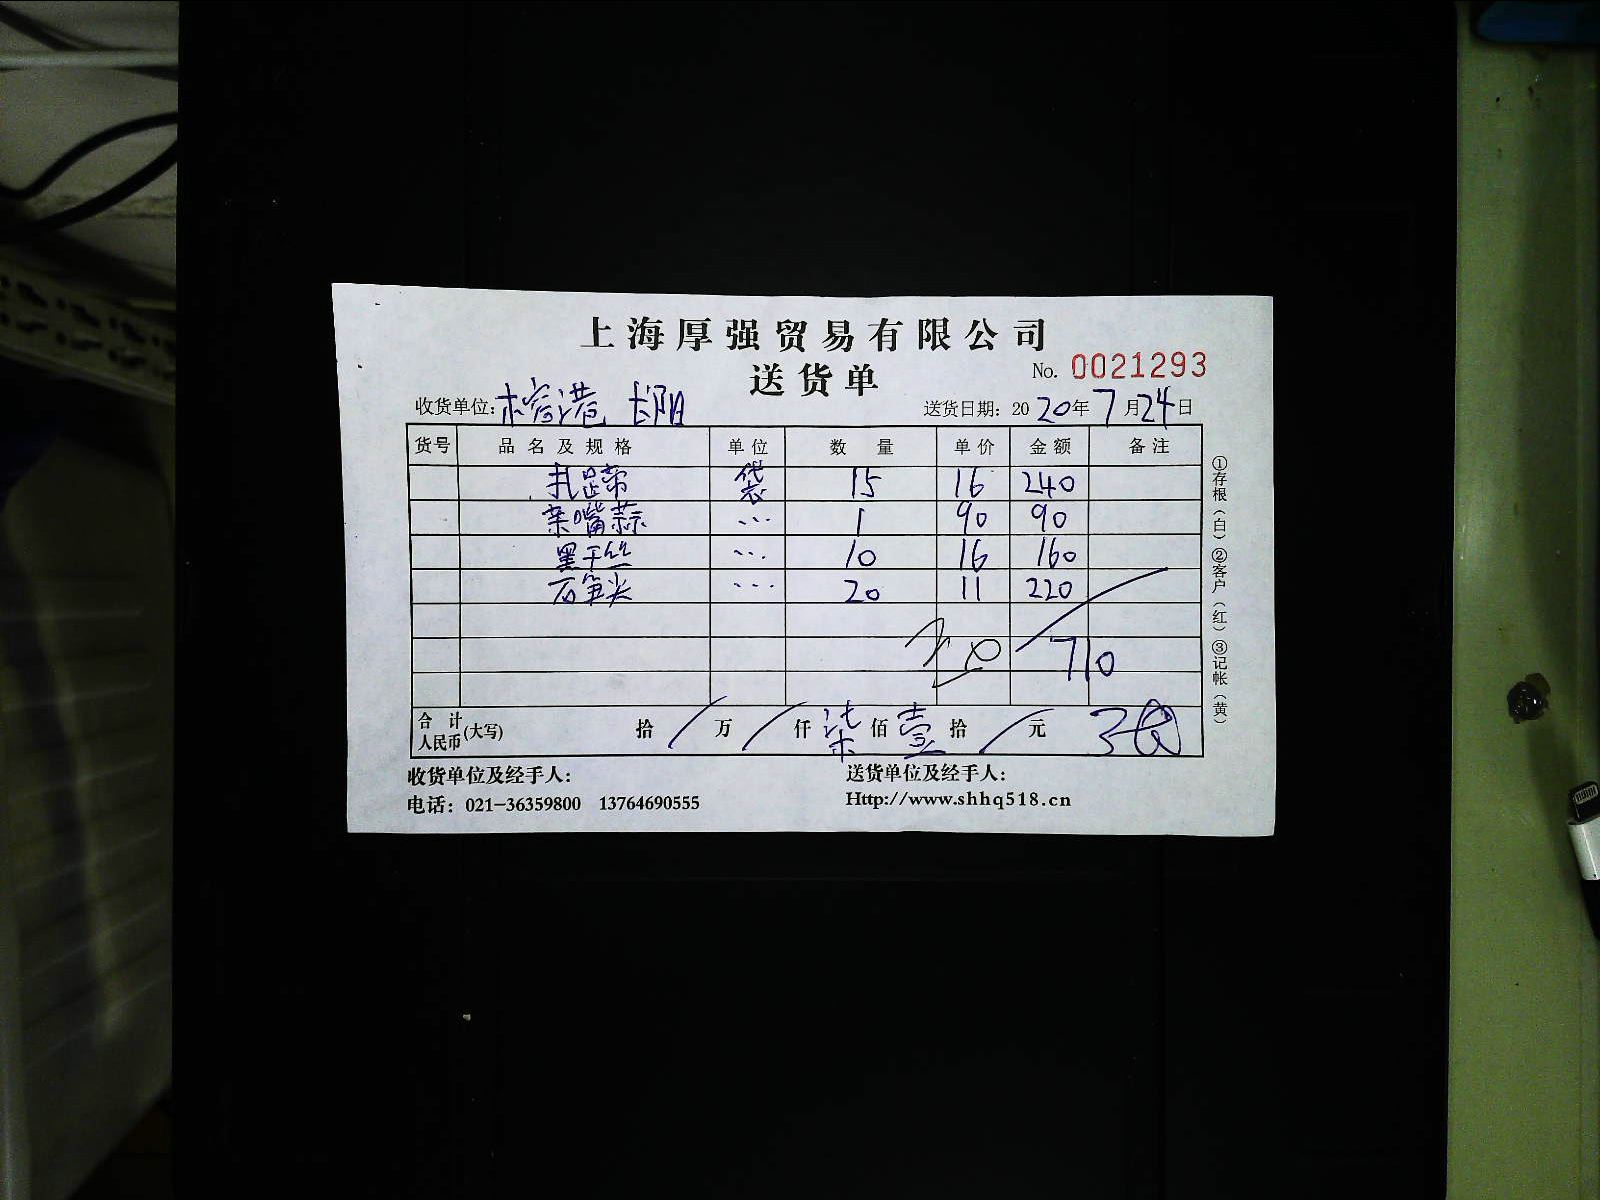 上海厚强贸易有限公司
送货单
No. 0021293
收货单位: 榕港 长阳
送货日期: 2020年7月24日
货号 品名及规格 单位 数量 单价 金额 备注
扎蹄 袋 15 16 240
亲嘴蒜 ... 1 90 90
黑干丝 ... 10 16 160
石笋尖 ... 20 11 220
710
合计人民币(大写) 拾 / 万 / 仟 柒 佰 壹 拾 / 元
收货单位及经手人:
送货单位及经手人:
电话: 021-36359800 13764690555
Http://www.shhq518.cn
①存根(白)②客户(红)③记帐(黄)